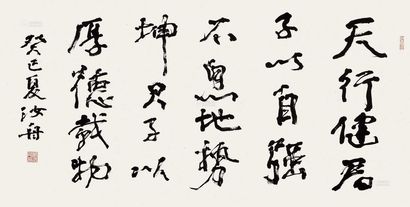 天行健君
子以自强
不息地势
坤君子以
厚德载物
癸巳夏汝舟